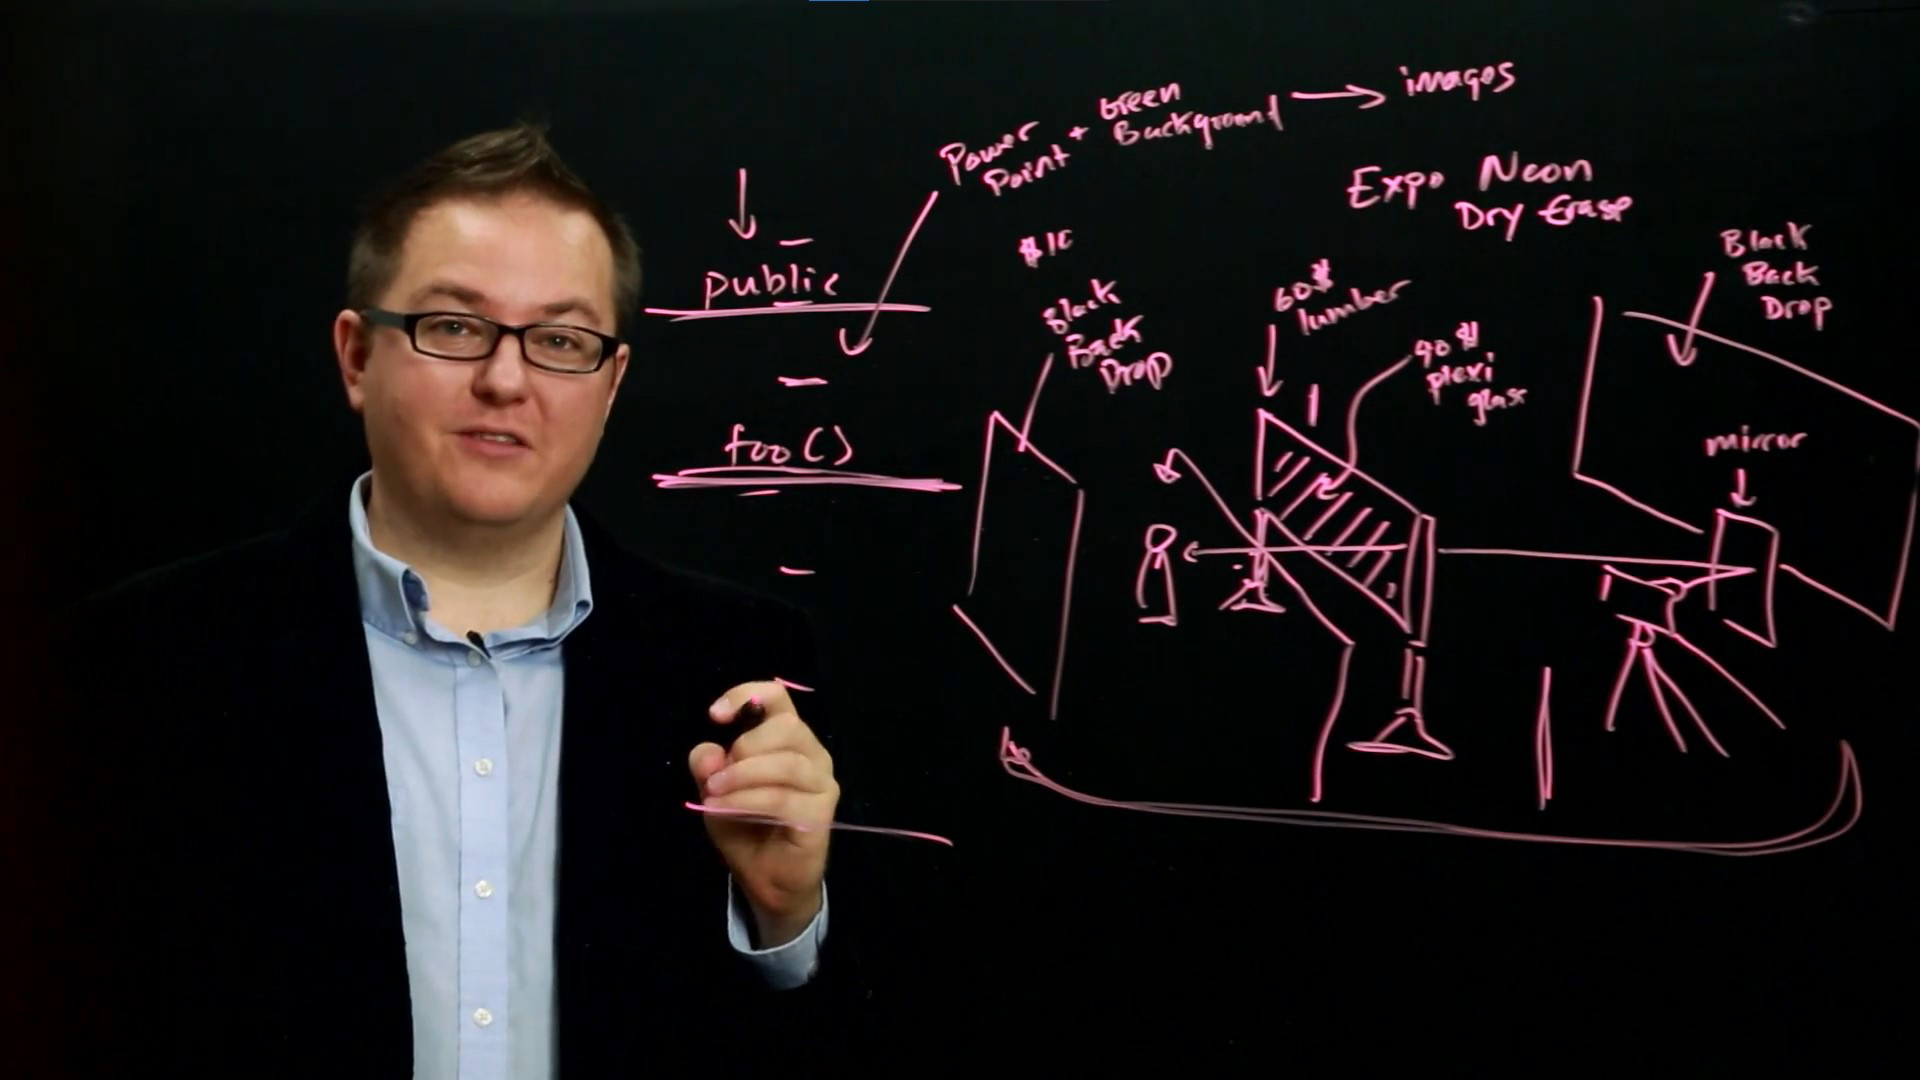 Power
Point
+
Green
Background
images
Expo Neon
Dry Erase
public
foo()
$10
Black
Back
Drop
60$
lumber
90$
plexi
glass
Black
Back
Drop
mirror